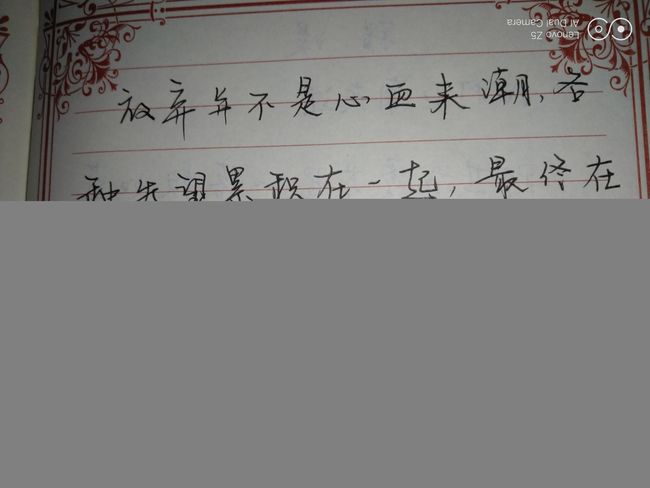 放弃并不是心血来潮，各
种失望累积在一起，最终在
Lenovo Z5
AI Dual Camera